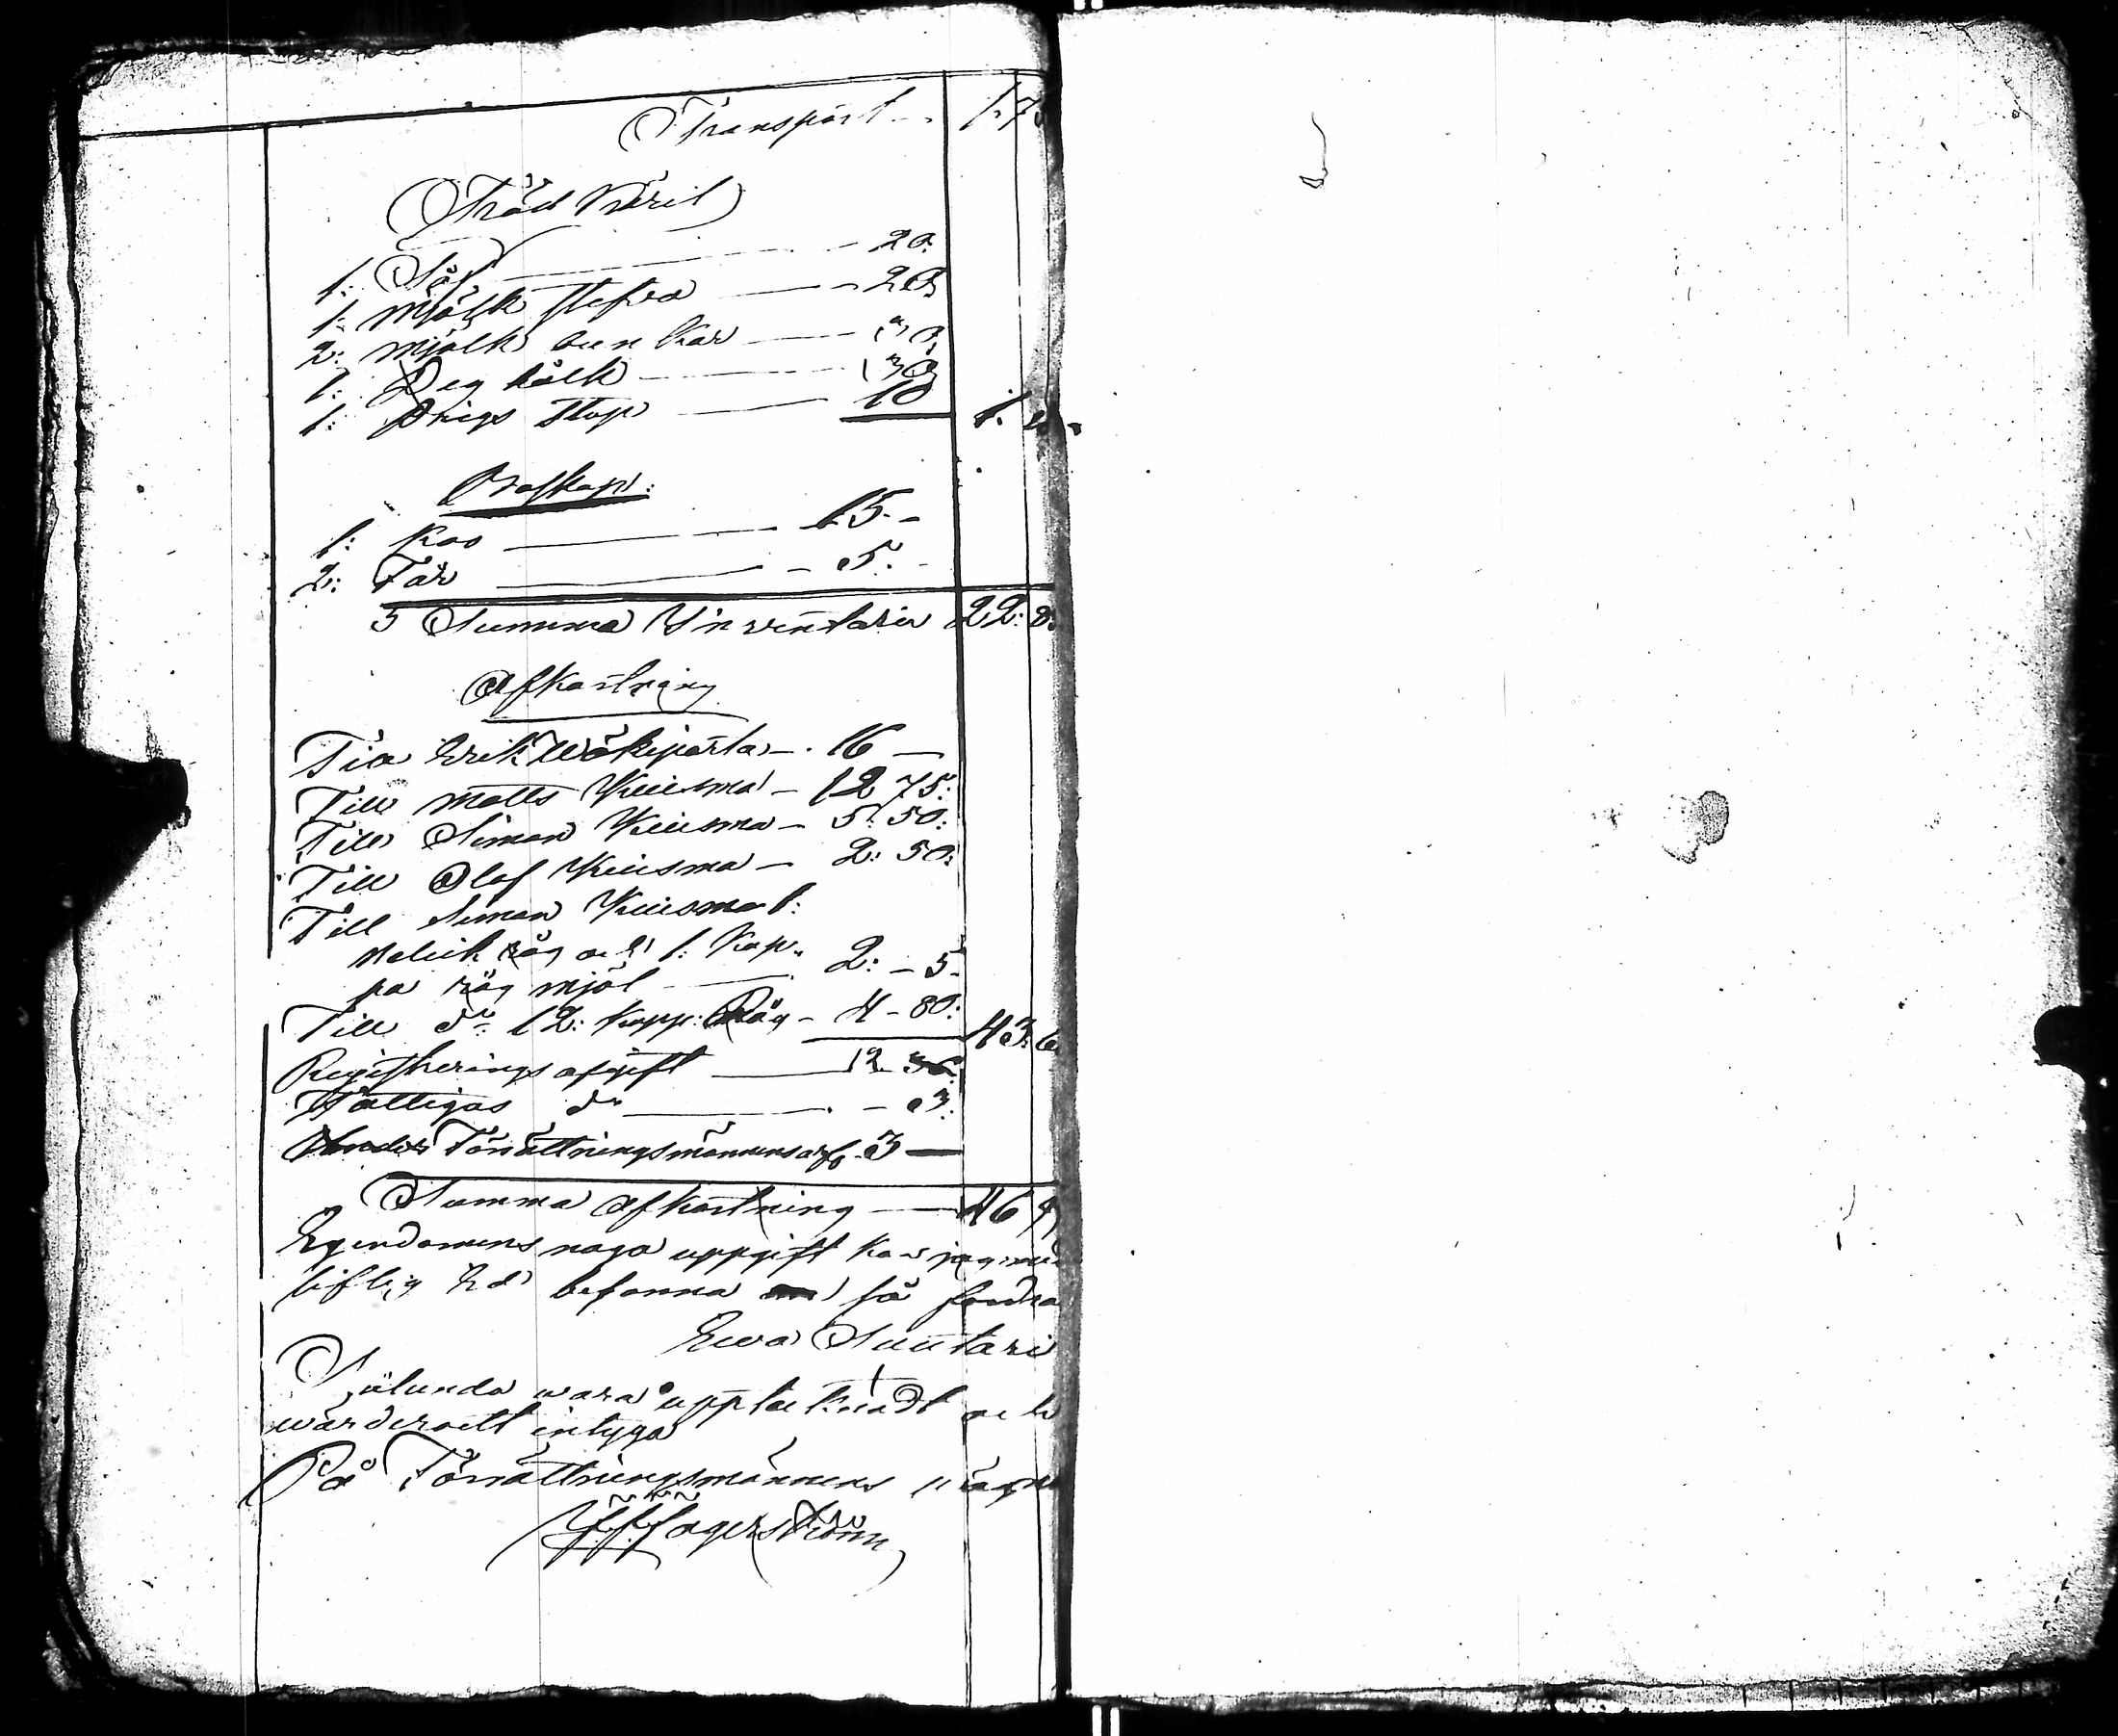 Transport - - 1. 75
Träd Käril
1: Så — 20.
1: Mjölk stefva — 20.
2: mjölk bunkar — 30.
1: Deg tråk — 30
1: Drigs stop — 10 1. 10.
Boskap:
1: Koo — 15. -
2: Får — 5. -
Summa Inventarier 22: 8
Afkortning
Till Erik Wäkiparta - 16 —
Till Matts Kiiesma - 12 75:
Till Simon Kiiesma - 5: 50:
Till Olof Kiiesma - 2: 50:
Till Simon Kiiesma 1:
råg och 1: Kap-
pa råg mjöl — 2: - 5-
Till do 12: Kapp: Råg - 4 - 80: 43: 6
Registrerings afgift — 12
Fattigas do — - 3:
Förrättningsmännens arf. 3 —
Summa afkortning — 46 9
Egendomens noga uppgift kan jag med
liflig Ed befanna så fordra
Ewa Suutari
Sålunda wara upptecknadt och
wärderadt intyga
På Förrättningsmännens wägna
Fagerström